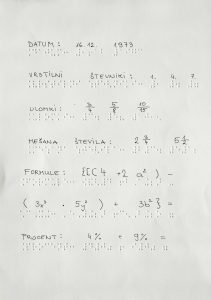 DATUM: 16.12. 1973
VRSTILNI ŠTEVNIKI: 1. 4. 7.
ULOMKI: 3/7 5/8 10/15
MEŠANA ŠTEVILA: 2 3/4 5 1/2
FORMULE: {[( 4 + 2 a² ) -
( 3x² . 5y² ) + 3b² } =
PROCENT: 4% + 9% =